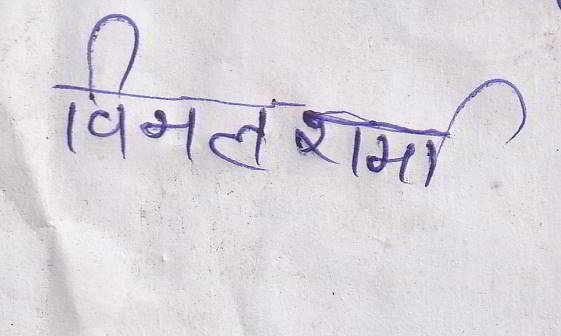 विमल शर्मा